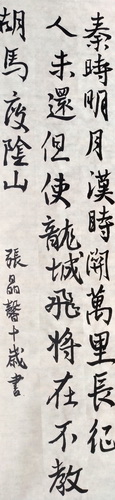 秦時明月漢時關萬里長征
人未還但使龍城飛將在不教
胡馬度陰山
張晶馨十歲書